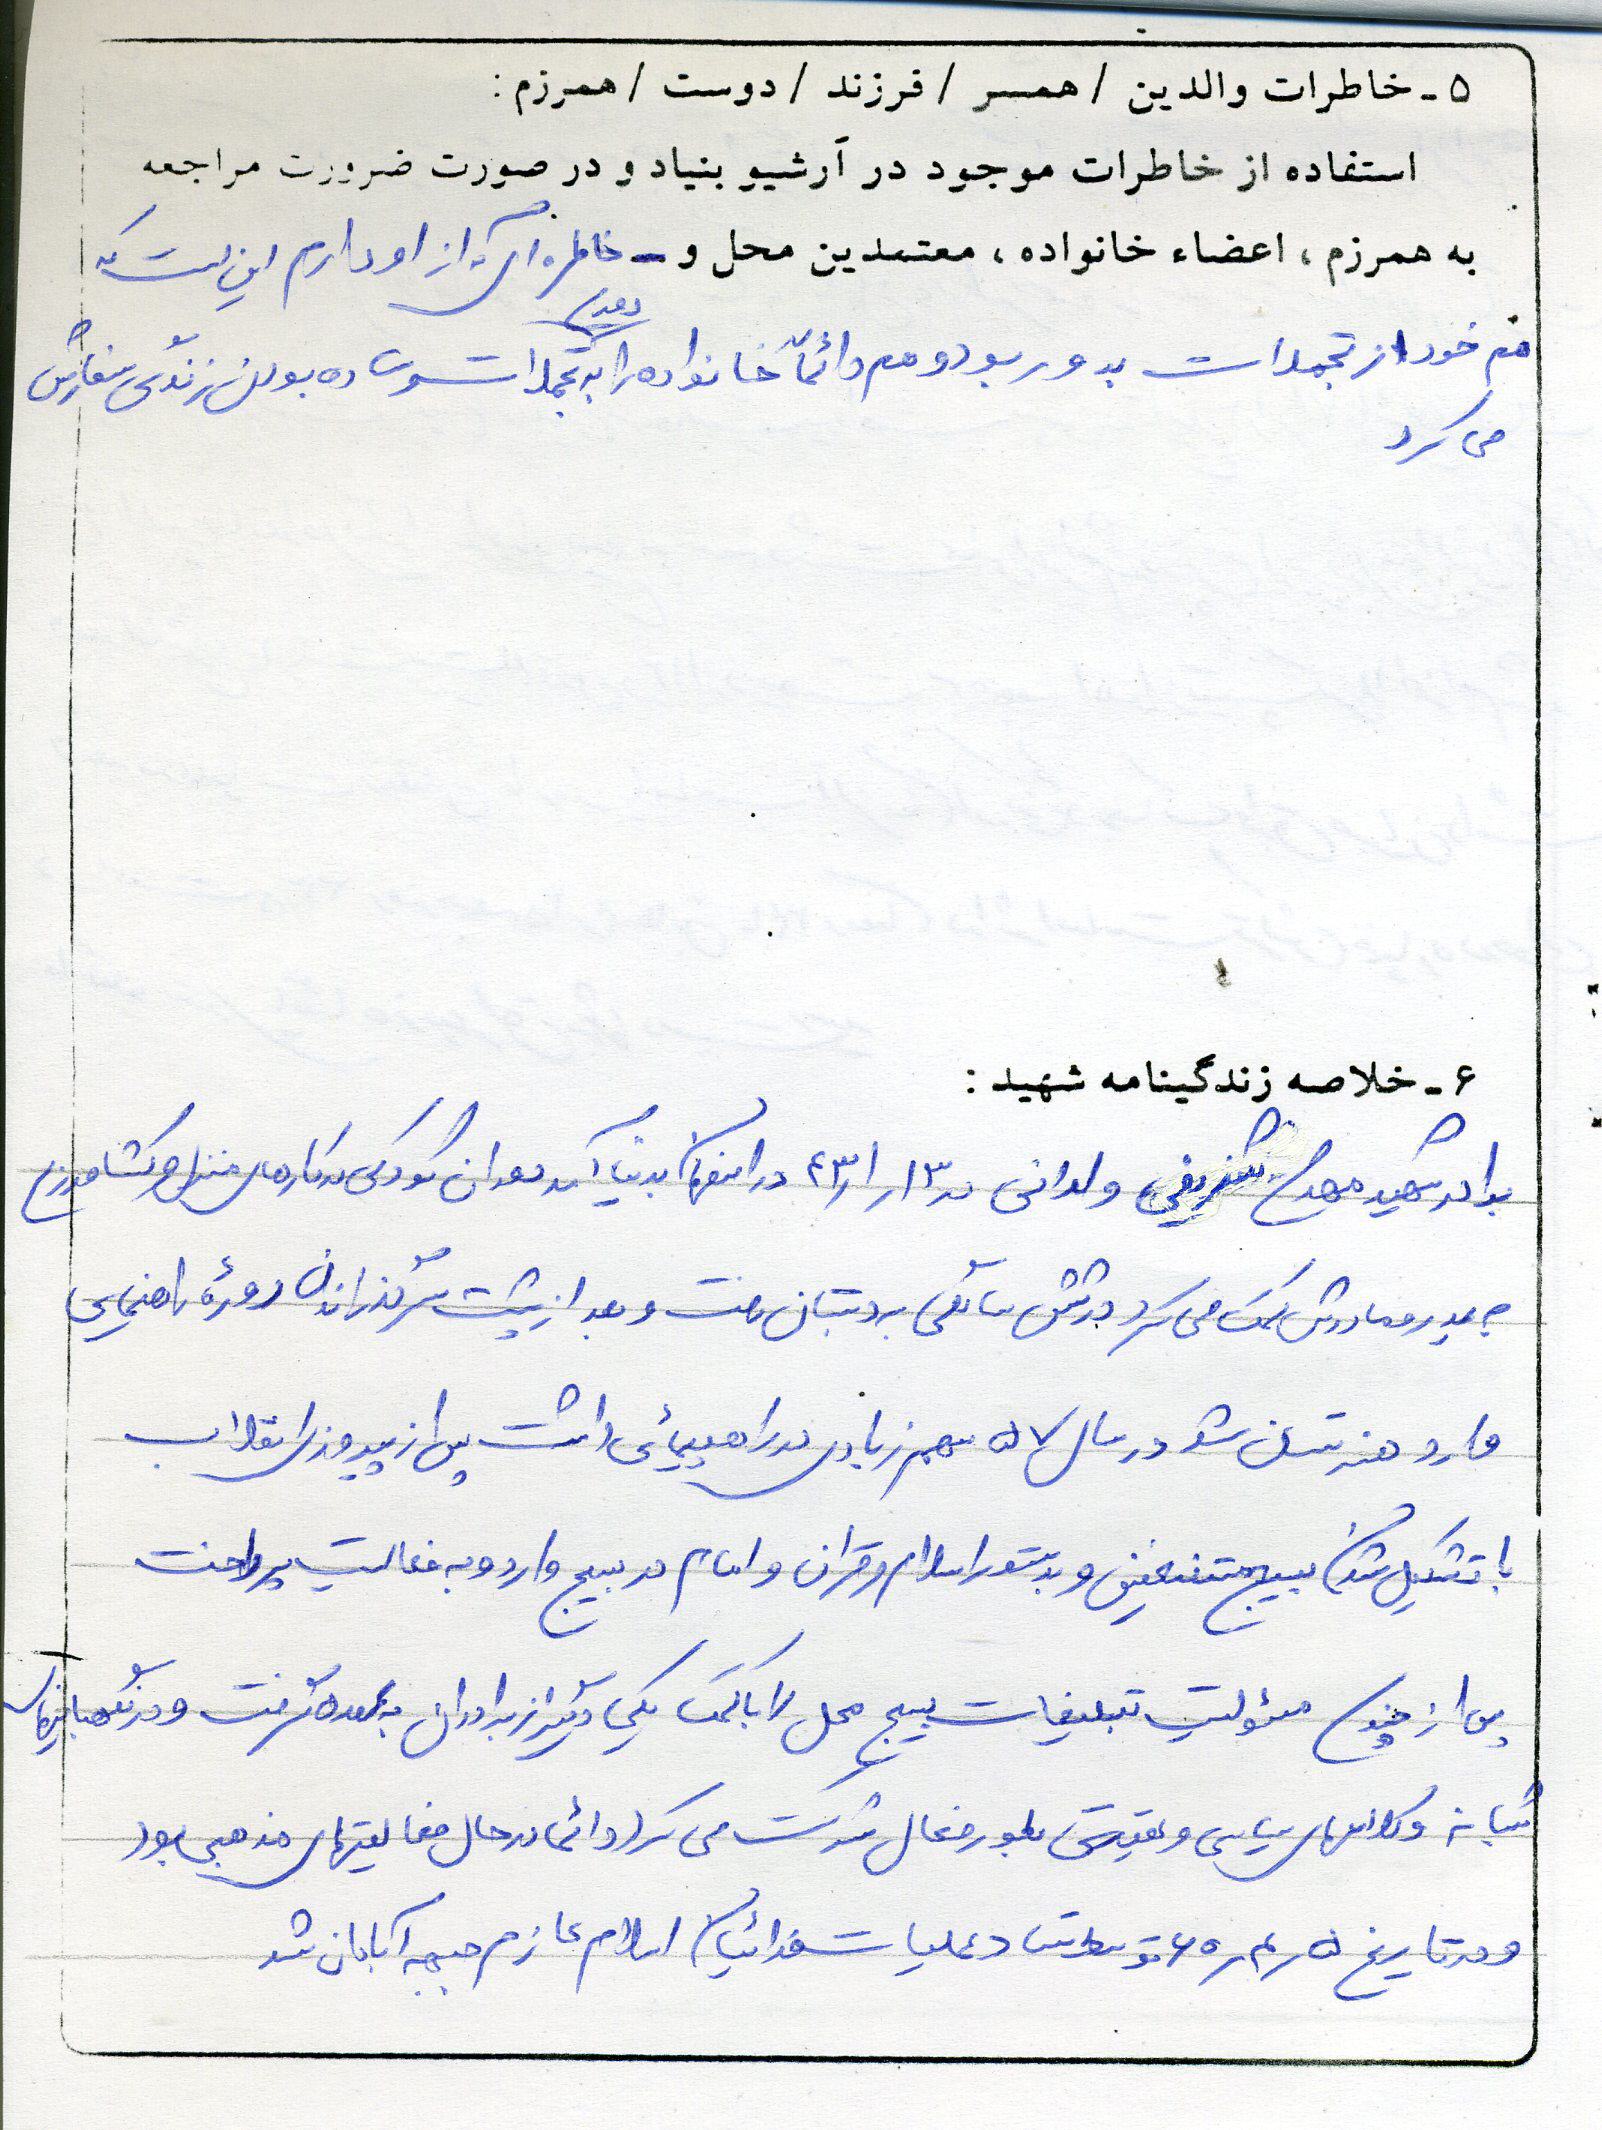 ۵ - خاطرات والدین / همسر / فرزند / دوست / همرزم :
استفاده از خاطرات موجود در آرشیو بنیاد و در صورت ضرورت مراجعه
به همرزم ، اعضاء خانواده ، معتمدین محل و - خاطره ای که از او دارم این است که
هم خود از تجملات بدور بود و هم دائماً خانواده را به تجملات ساده بودن زندگی سفارش
می کرد
۶ - خلاصه زندگینامه شهید :
برادر شهید مهدی شریفی ولدانی در ۱۳ر۱ر۴۳ در اصفهان بدنیا آمد دوران کودکی در کارهای منزل و کشاورزی
به پدر و مادرش کمک می کرد در شش سالگی به دبستان رفت و بعد از پشت سر گذراندن دورۀ راهنمایی
وارد هنرستان شد در سال ۵۷ سهم زیادی در راهپیمائی داشت پس از پیروزی انقلاب
با تشکیل شدن بسیج مستضعفین و بدستور اسلام و قران و امام در بسیج وارد و به فعالیت پرداخت
پس از چندی مسؤلیت تبلیغات بسیج محل را با کمک یکی دیگر از برادران به عهده گرفت و در نگهبانیهای
شبانه و کلاسهای سیاسی و عقیدتی بطور فعال شرکت می کرد دائما در حال فعالیتهای مذهبی بود
و در تاریخ ۵ر۴ر۶۰ توسط ستاد عملیات فدائیان اسلام عازم جبهه آبادان شد